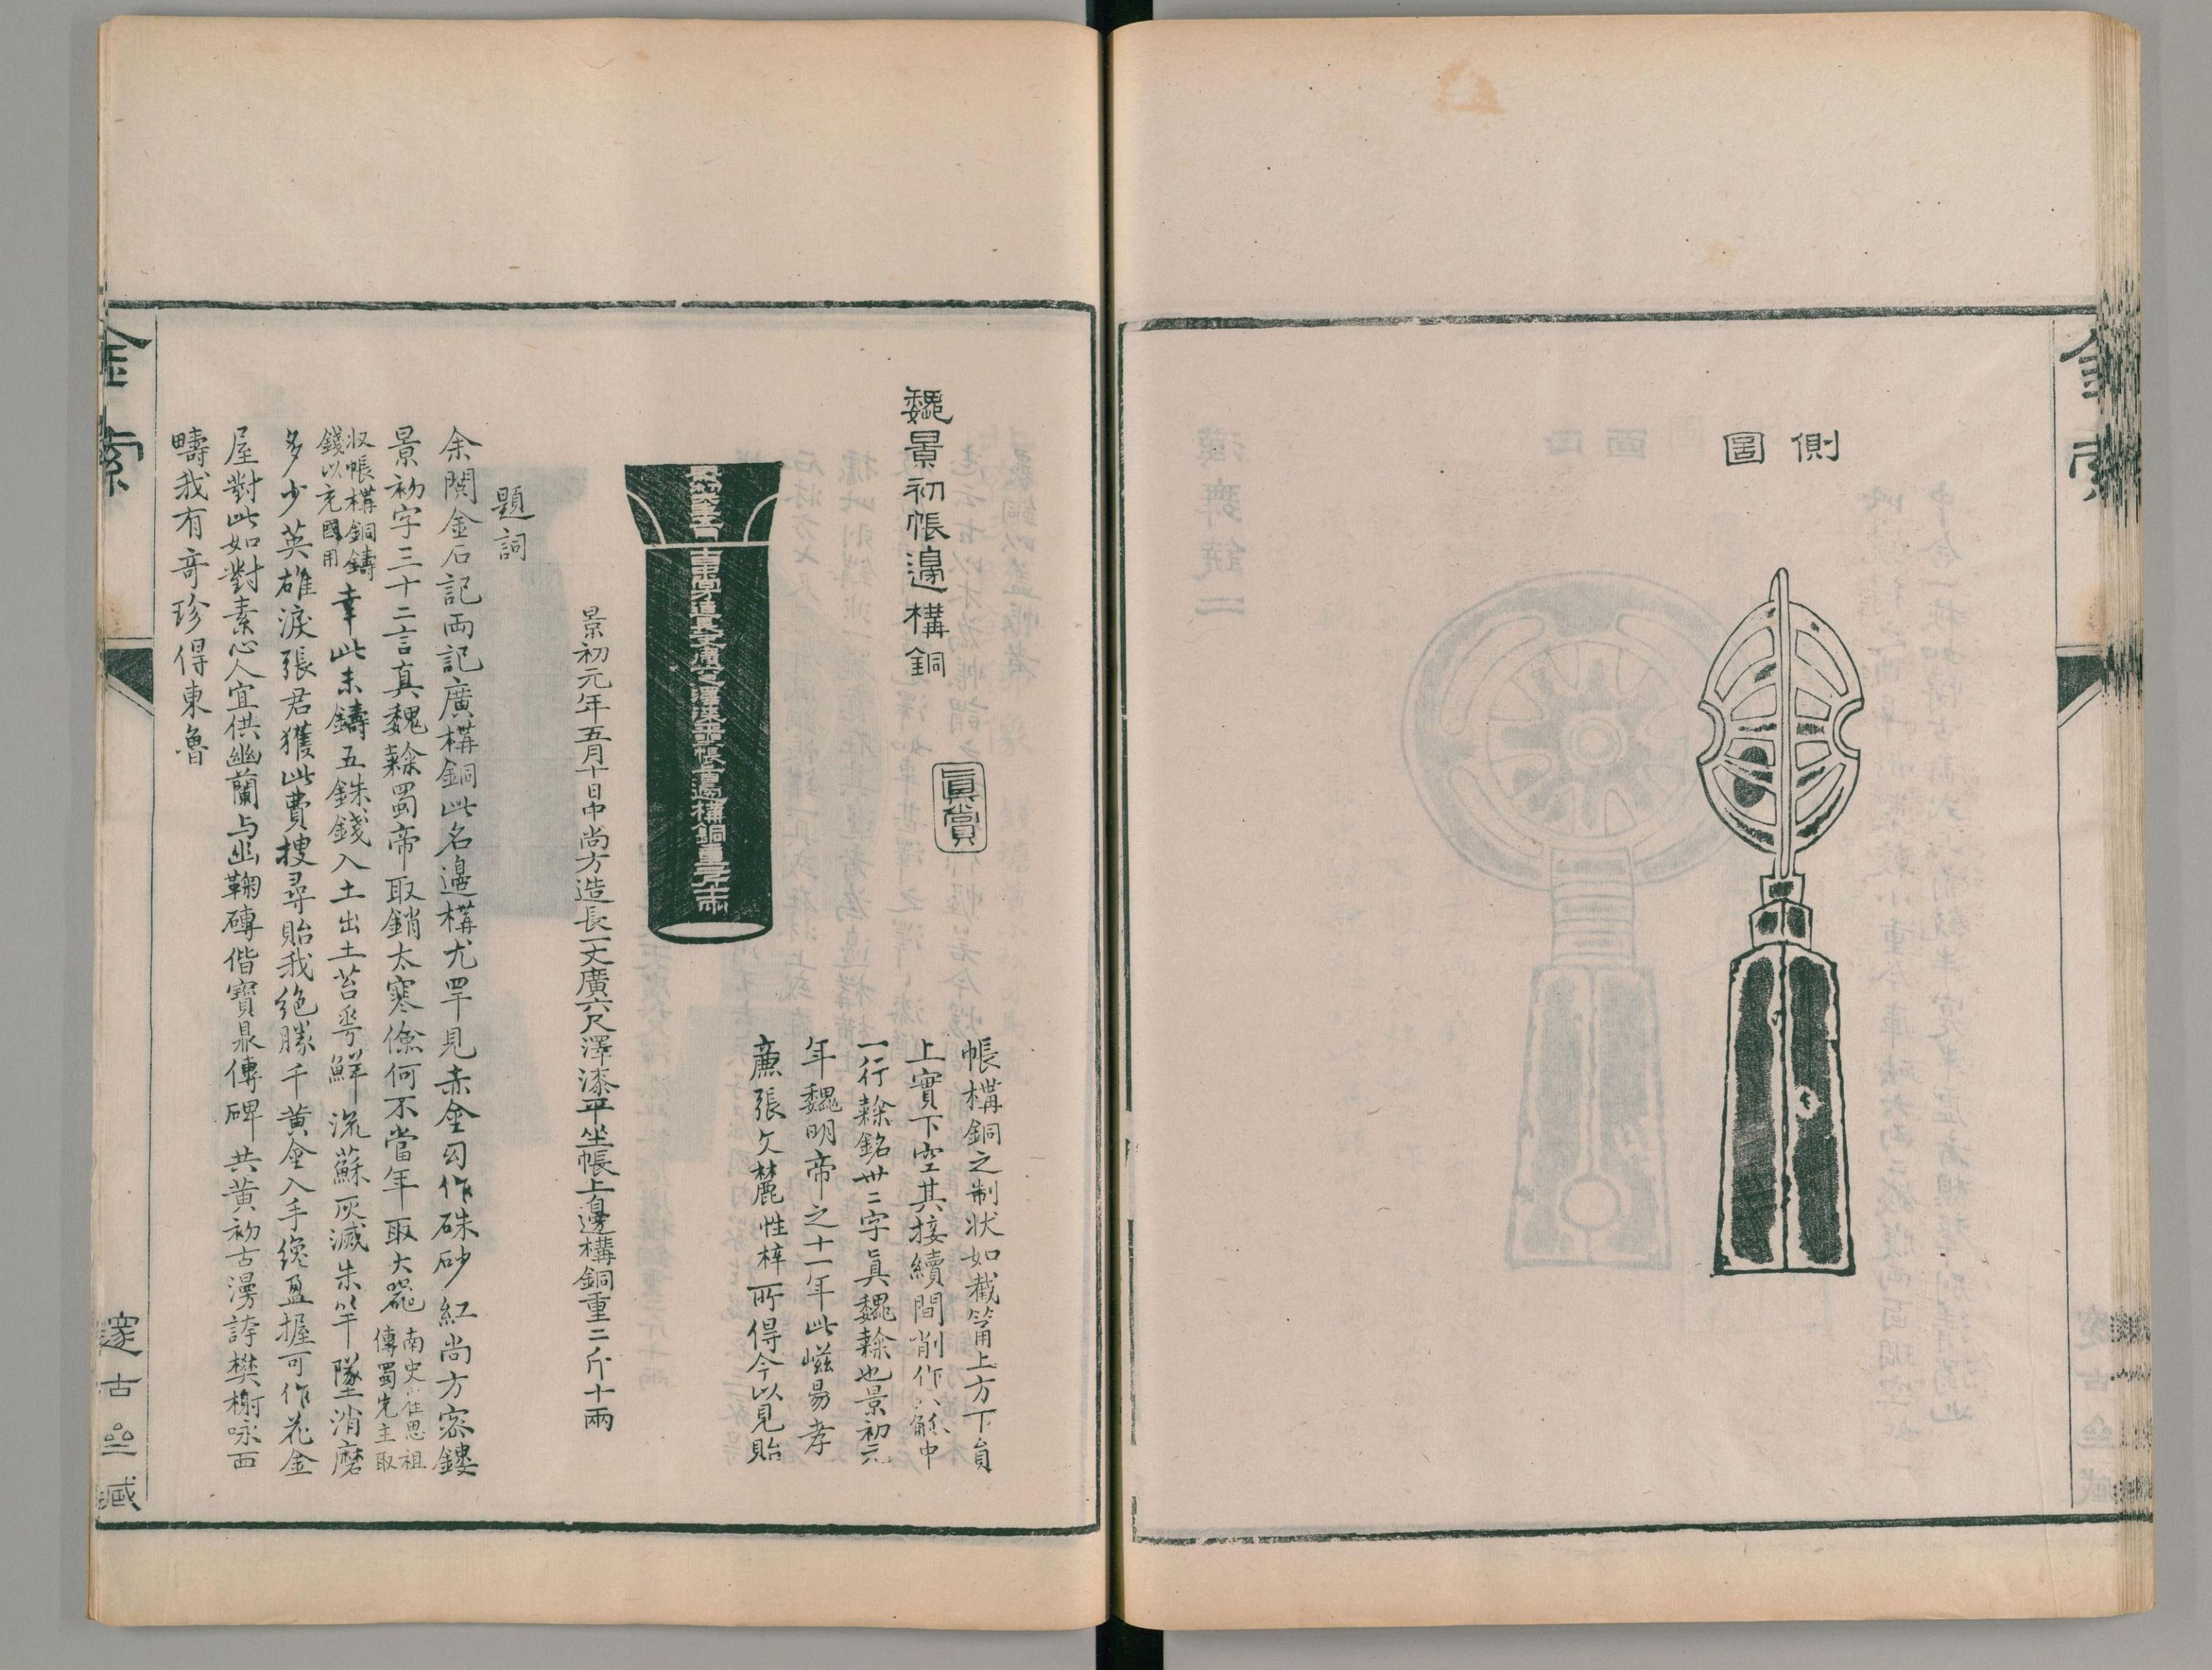 側圖
金索
魏景初帳邊構銅
眞賞
帳構銅之制狀如截筩上方下員
上實下空其接續間削作八觚中
一行隸銘卅二字眞魏隸也景初元
年魏明帝之十一年此嵫昜孝
廉張欠麓性梓所得今以見貽
景初元年五月十日中尚方造長一丈廣六尺澤漆平坐帳上邊構銅重二斤十兩
題詞
余閱金石記兩記廣構銅此名邊構尤罕見赤金匀作硃砂紅尚方密鏤
景初字三十二言真魏隸蜀帝取銷太寒儉何不當年取大器南史崔思祖傳蜀先主取
収帳構銅鑄錢以充國用幸此未鑄五銖錢入土出土苔㟧鮮流蘇灰滅朱竿墜消磨
多少英雄淚張君獲此費搜尋貽我絶勝千黄金入手纔盈握可作花金
屋對此如對素心人宜供幽蘭与幽鞠磚偕寶鼎傳碑共黄初古漫誇樊榭咏面
疇我有奇珍得東魯
金索
邃古
藏